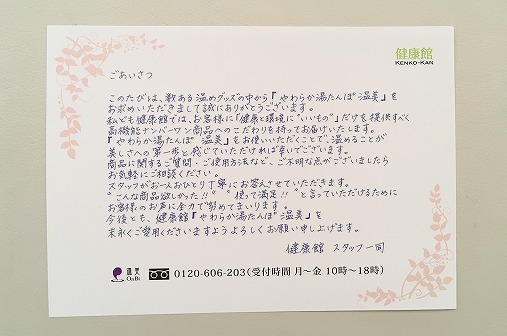 健康館
KENKO-KAN
ごあいさつ
このたびは、数ある温めグッズの中から『やわらか湯たんぽ 温美』を
お求めいただきまして誠にありがとうございます。
私ども健康館では、お客様に「健康と環境に"いいもの"」だけを提供すべく
高機能ナンバーワン商品へのこだわりを持ってお届けいたします。
『やわらか湯たんぽ 温美』をお使いいただくことで、温めることが
美しさへの第一歩と感じていただければ幸いでございます。
商品に関するご質問・ご使用方法など、ご不明な点がございましたら
お気軽にご相談ください。
スタッフがお一人おひとり丁寧にお答えさせていただきます。
"こんな商品欲しかった!!" "使って満足!!"と言っていただけるために
お客様のお声に全力で努めてまいります。
今後とも、健康館『やわらか湯たんぽ 温美』を
末永くご愛用くださいますようよろしくお願い申し上げます。
健康館 スタッフ一同
温美
OnBi
0120-606-203(受付時間 月〜金 10時〜18時)